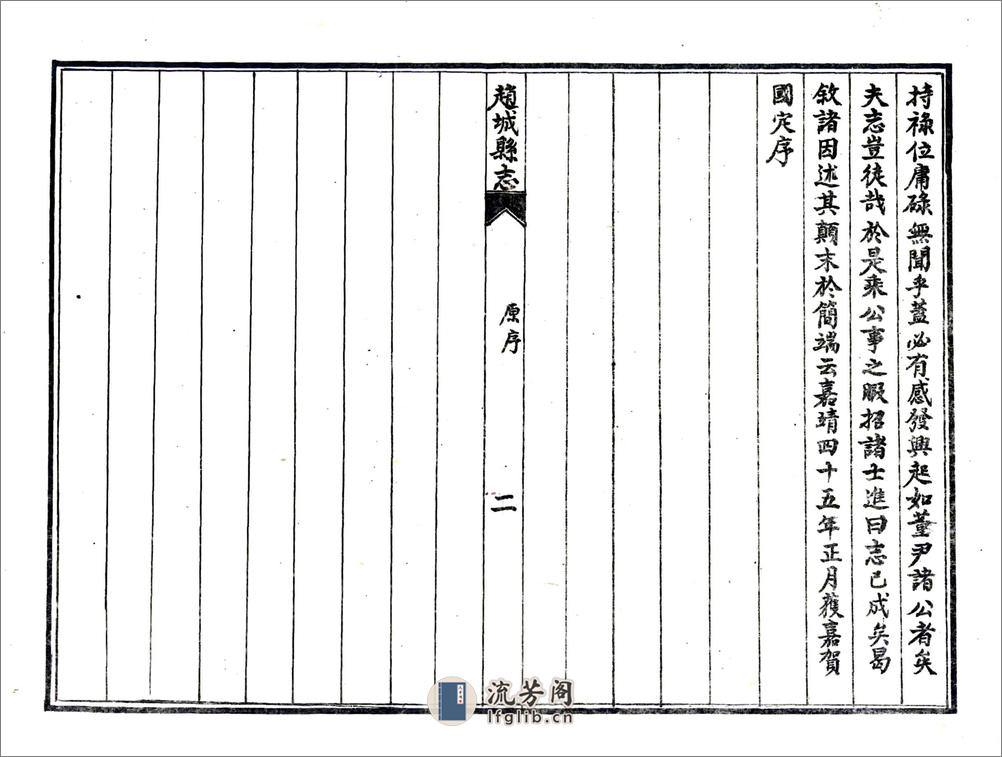 持祿位庸碌無聞乎蓋必有感發興起如董尹諸公者矣
夫志豈徒哉於是乘公事之暇招諸士進曰志已成矣曷
敘諸因述其顛末於簡端云嘉靖四十五年正月獲嘉賀
國定序
趙城縣志
原序
二
流芳阁
lfglib.cn